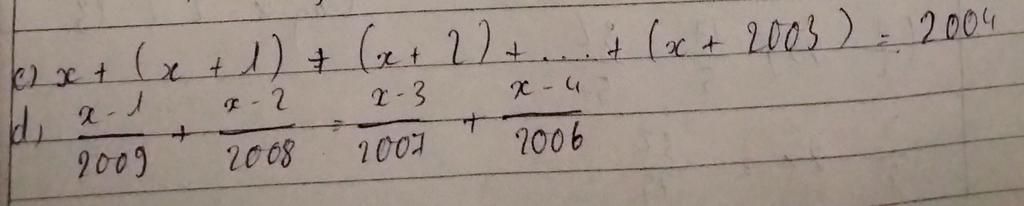 c) x + (x + 1) + (x + 2) + .... + (x + 2003) = 2004
d, x - 1 / 2009 + x - 2 / 2008 = x - 3 / 2007 + x - 4 / 2006